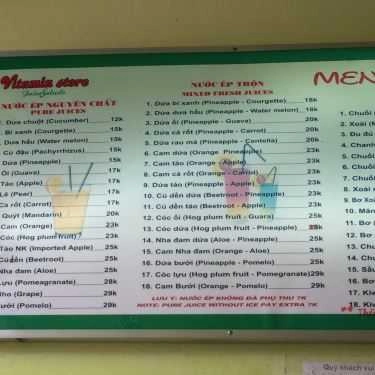 Vitamin store
Juice & Salads
NƯỚC ÉP NGUYÊN CHẤT
PURE JUICES
Dưa chuột (Cucumber) 12k
Bí xanh (Courgette) 15k
Dưa hấu (Water melon) 15k
Củ đậu (Pachyrrhizus) 15k
Dứa (Pineapple) 15k
Ổi (Guava) 17k
Táo (Apple) 17k
Lê (Pear) 17k
Cà rốt (Carrot) 17k
Quýt (Mandarin) 20k
Cam (Orange) 23k
Cóc (Hog plum fruit) 23k
Táo NK (Imported Apple) 25k
Củ dền (Beetroot) 25k
Nha đam (Aloe) 25k
Lựu (Pomegranate) 28k
Nho (Grape) 29k
Bưởi (Pomelo) 29k
NƯỚC ÉP TRỘN
MIXED FRESH JUICES
1. Dứa bí xanh (Pineapple - Courgette) 15k
2. Dứa dưa hấu (Pineapple - Water melon) 18k
3. Dứa ổi (Pineapple - Guava) 18k
4. Dứa cà rốt (Pineapple - Carrot) 18k
5. Dứa rau má (Pineapple - Centella) 18k
6. Cam dứa (Orange - Pineapple) 23k
7. Cam táo (Orange - Apple) 23k
8. Cam cà rốt (Orange - Carrot) 23k
9. Dứa táo (Pineapple - Apple) 23k
10. Củ dền dứa (Beetroot - Pineapple) 23k
11. Củ dền táo (Beetroot - Apple) 23k
12. Cóc ổi (Hog plum fruit - Guara) 25k
13. Cóc dứa (Hog plum fruit - Pineapple)
14. Nha đam dứa (Aloe - Pineapple) 25k
15. Cam Nha đam (Orange - Aloe) 25k
16. Dứa bưởi (Pineapple - Pomelo) 25k
17. Cóc lựu (Hog plum fruit - Pomegranate) 29k
18. Cam Bưởi (Orange - Pomelo) 29k
LƯU Ý: NƯỚC ÉP KHÔNG ĐÁ PHỤ THU 7K
NOTE: PURE JUICE WITHOUT ICE PAY EXTRA 7K
MEN
1. Chuối
2. Xoài
3. Đu đủ
4. Chanh
5. Chuối
6. Chuối
7. Chuối
8. Xoài
9. Bơ
10. Xoài
11. Bơ
12. Chuối
13. Chuối
14. Bơ
15. Bơ
16. Bơ
17. Kiwi
18. Kiwi
Quý khách vui